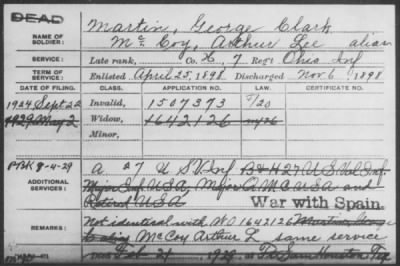 DEAD
NAME OF SOLDIER: Martin, George Clark
McCoy, Arthur Lee alias
SERVICE: Late rank, Co. H, 7 Regt. Ohio Inf
TERM OF SERVICE: Enlisted April 25, 1898 Discharged Nov 6 1898
DATE OF FILING. CLASS. APPLICATION NO. LAW. CERTIFICATE NO.
1924 Sept 22 Invalid, 1507373 7/20
1929 May 2 Widow, 1642126
Minor,
4-29
ADDITIONAL SERVICES: A 27 U S V Inf B & H 27 U S Vol Inf.
Major Inf U S A, Major Q M C U S A and
Retired U S A War with Spain.
REMARKS: Not identical with W.O. 1642126 Martin
McCoy Arthur L same service
Died Feb 21, 1929, at Ft Sam Houston Tex